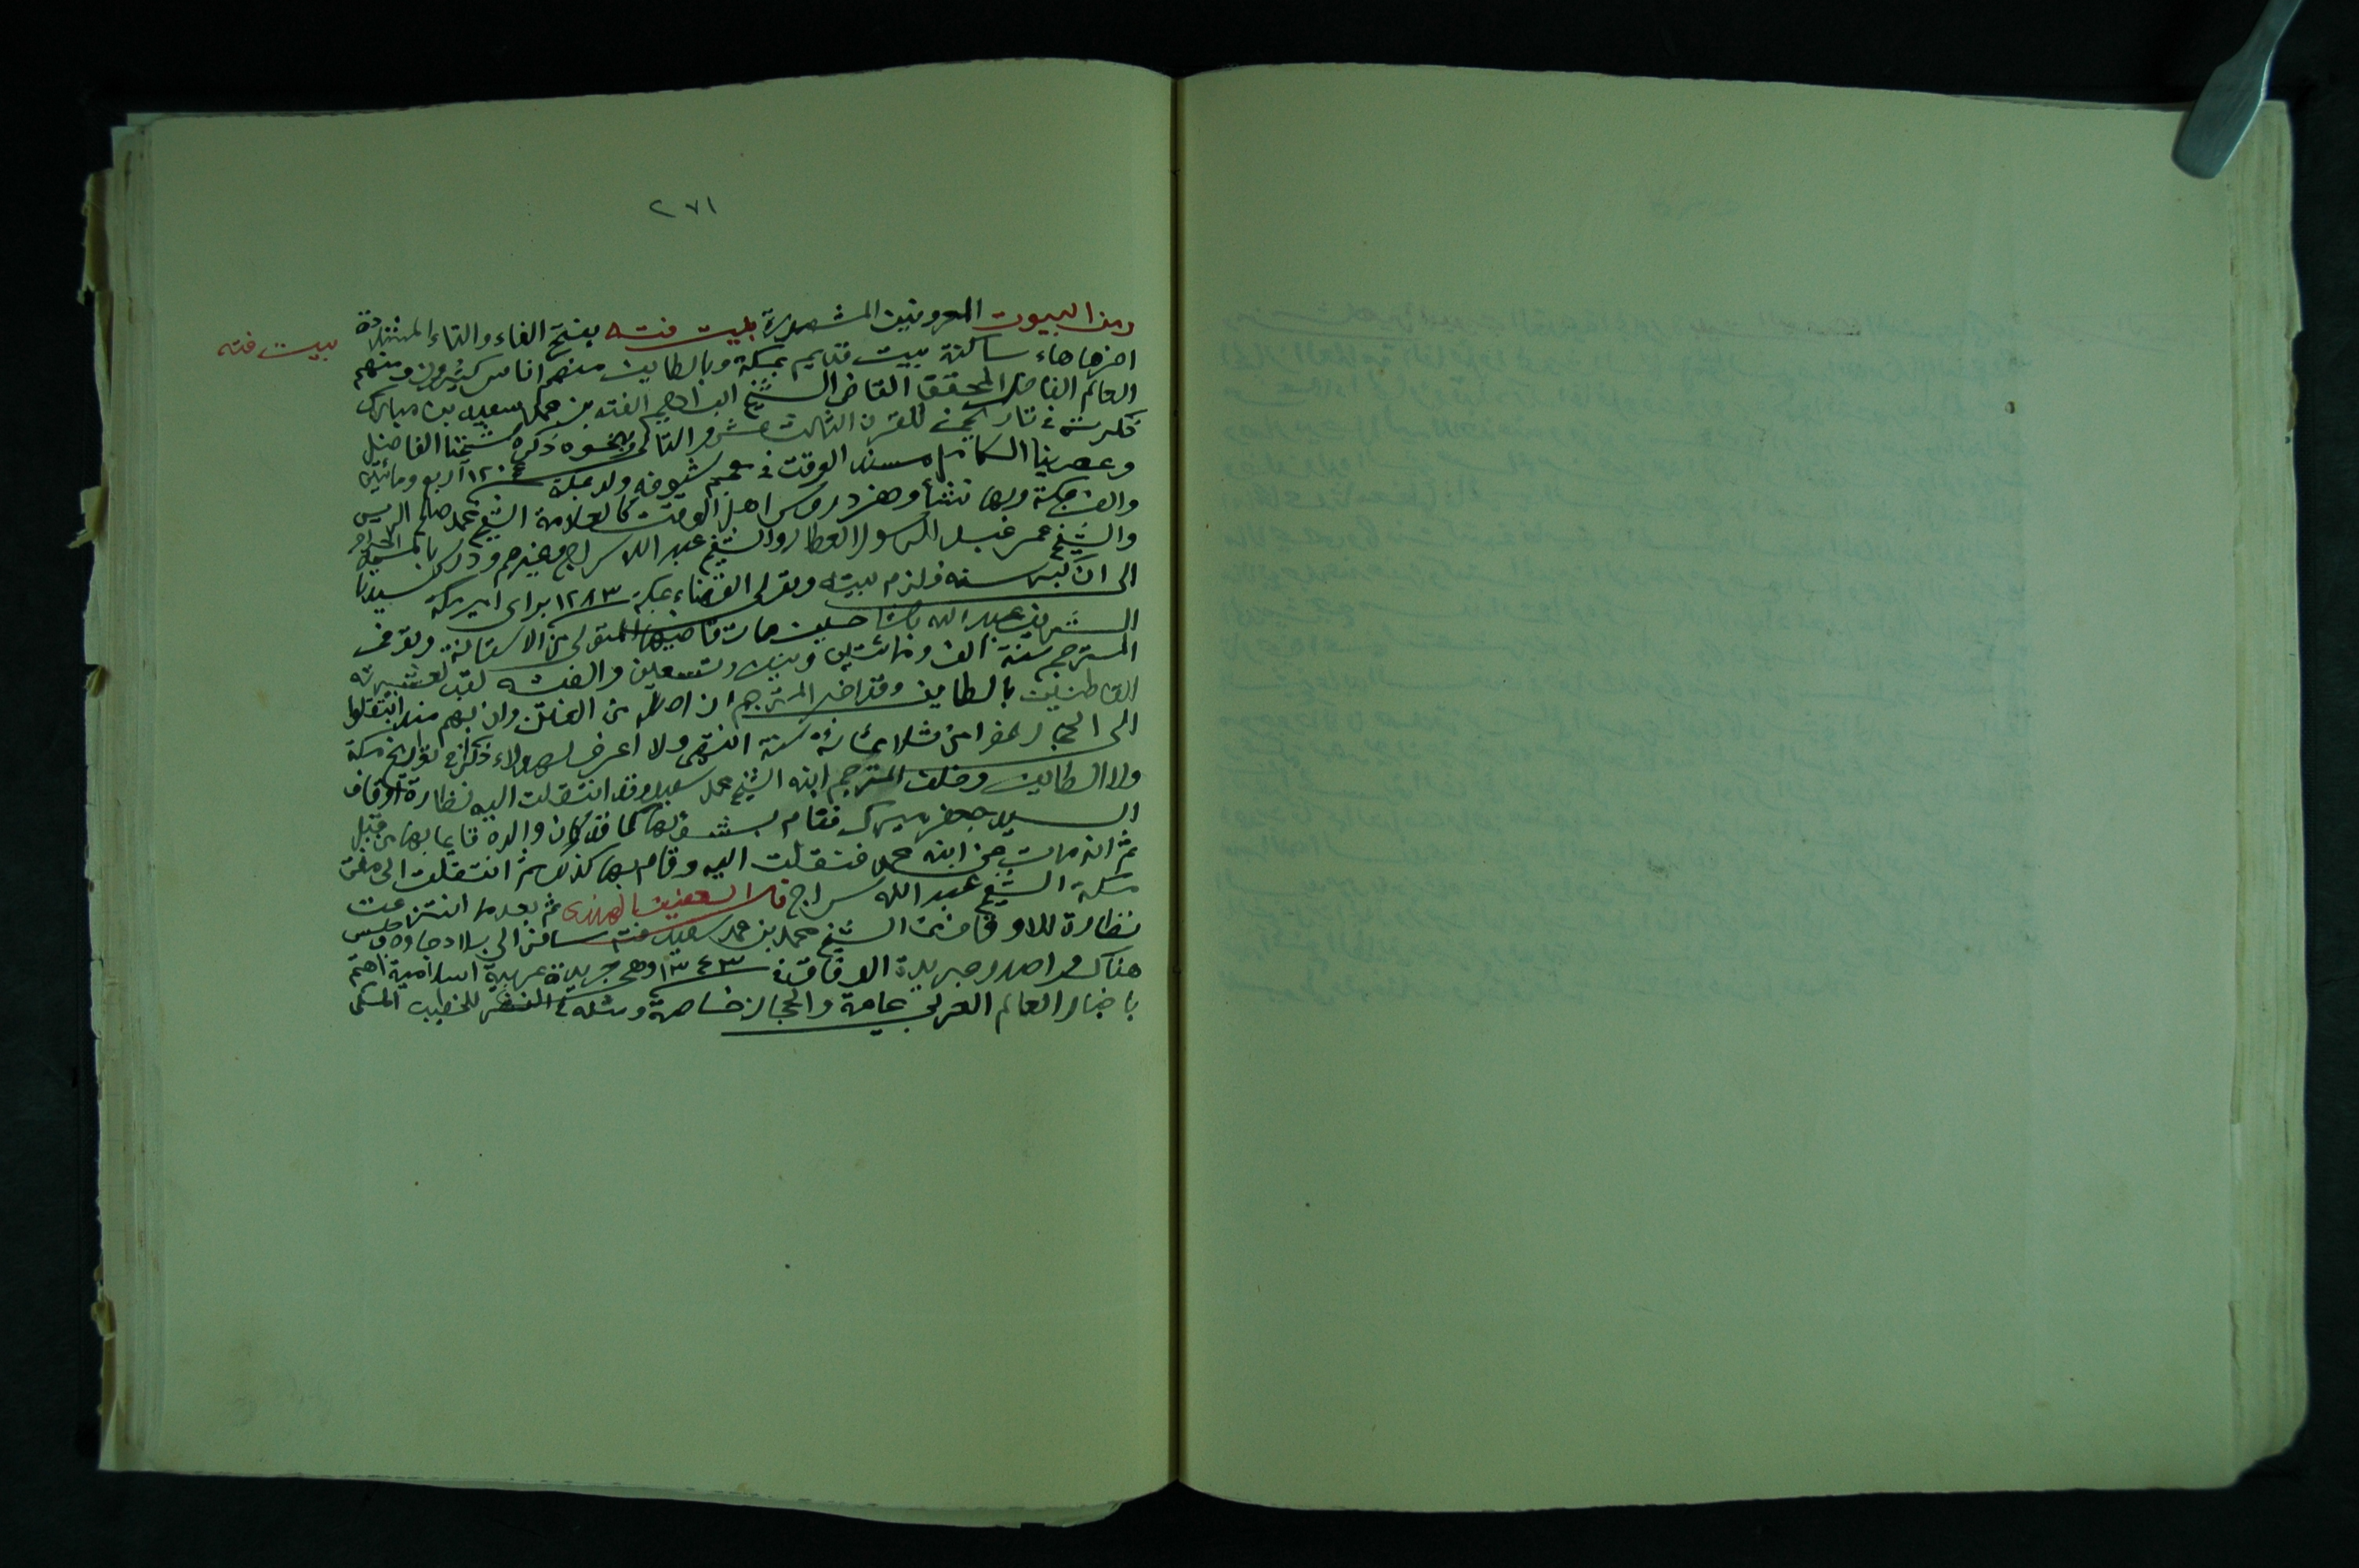 ٢٧١
ومن البيوت المعروفين المشهورة بيت فته بفتح الفاء والتاء المشددة
بيت فته
اخرها هاء ساكنة بيت قديم بمكة وبالطايف منهم اناس كثيرون ومنهم
العالم الفاضل المحقق القاضي الشيخ ابراهيم الفته بن محمد سعيد بن مبارك
ذكرته في تاريخي للقرن الثالث عشر والتالي وبنحوه ذكره شيخنا الفاضل
وعصرينا الكامل مسند الوقت في معجم شيوخه ولد بمكة سنة ١٢٠٤ اربع ومائتين
والف بمكة وبها نشأ وحضر دروس اهل الوقت كالعلامة الشيخ محمد صالح الريس
والشيخ عمر عبد الرسول العطار والشيخ عبد الله سراج وغيرهم ودرس بالمسجد الحرام
الى ان كبر سنه فلزم بيته وتولى القضاء بمكة سنة ١٢٨٣ براى امير مكة سيدنا
الشريف عبد الله باشا حين مات قاضيها المتولى من الاستانة وتوفى
المترجم سنة الف ومائتين وتسعين والفته لقب لعشيرته
القاطنين بالطايف وقد اخبر المترجم ان اصله من الفتن وان بهم منه انتقلوا
الى الحجاز نحوا من ثلاثمائة سنة انتهى ولا اعرف لهولاء ذكرا في تواريخ مكة
ولا الطايف وخلف المترجم ابنه الشيخ محمد سعيد وقد انتقلت اليه نظارة اوقاف
السيد جعفر ميرك فقام بشغلها كما قد كان والده قايما بها من قبل
ثم انه مات عن ابنه محمد فنقلت اليه وقام بها كذلك ثم انتقلت الى مفتي
مكة الشيخ عبد الله سراج قال العفيف الهندى ثم بعد ما انتزعت
نظارة للاوقاف من الشيخ محمد بن محمد سعيد فته سافر الى بلاد جاوه وجلس
هناك واصدر جريدة الوفاق سنة ١٣٤٣ وهي جريدة عربية اسلامية اهتم
باخبار العالم العربي عامة والحجاز خاصة ومثله في للخطيب المكي